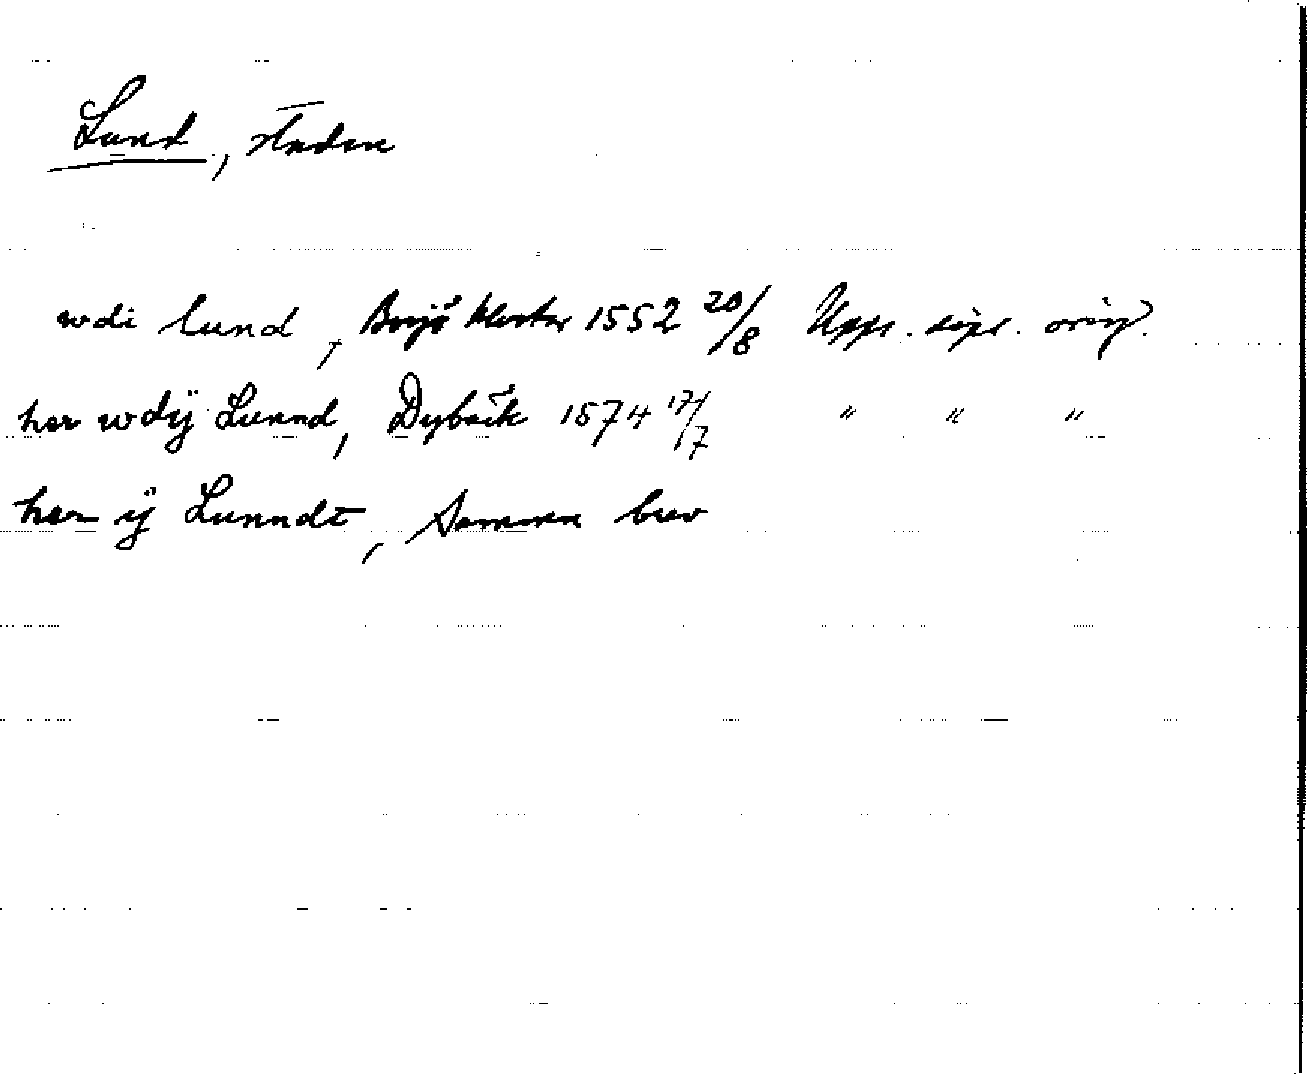 Lund, staden
wdi lund, Börjö kloster 1552 20/8 Upps. dipl. orig.
her wdÿ Lunnd, Dybäck 1574 17/7 " " "
her ÿ Lunndt, Samma brev